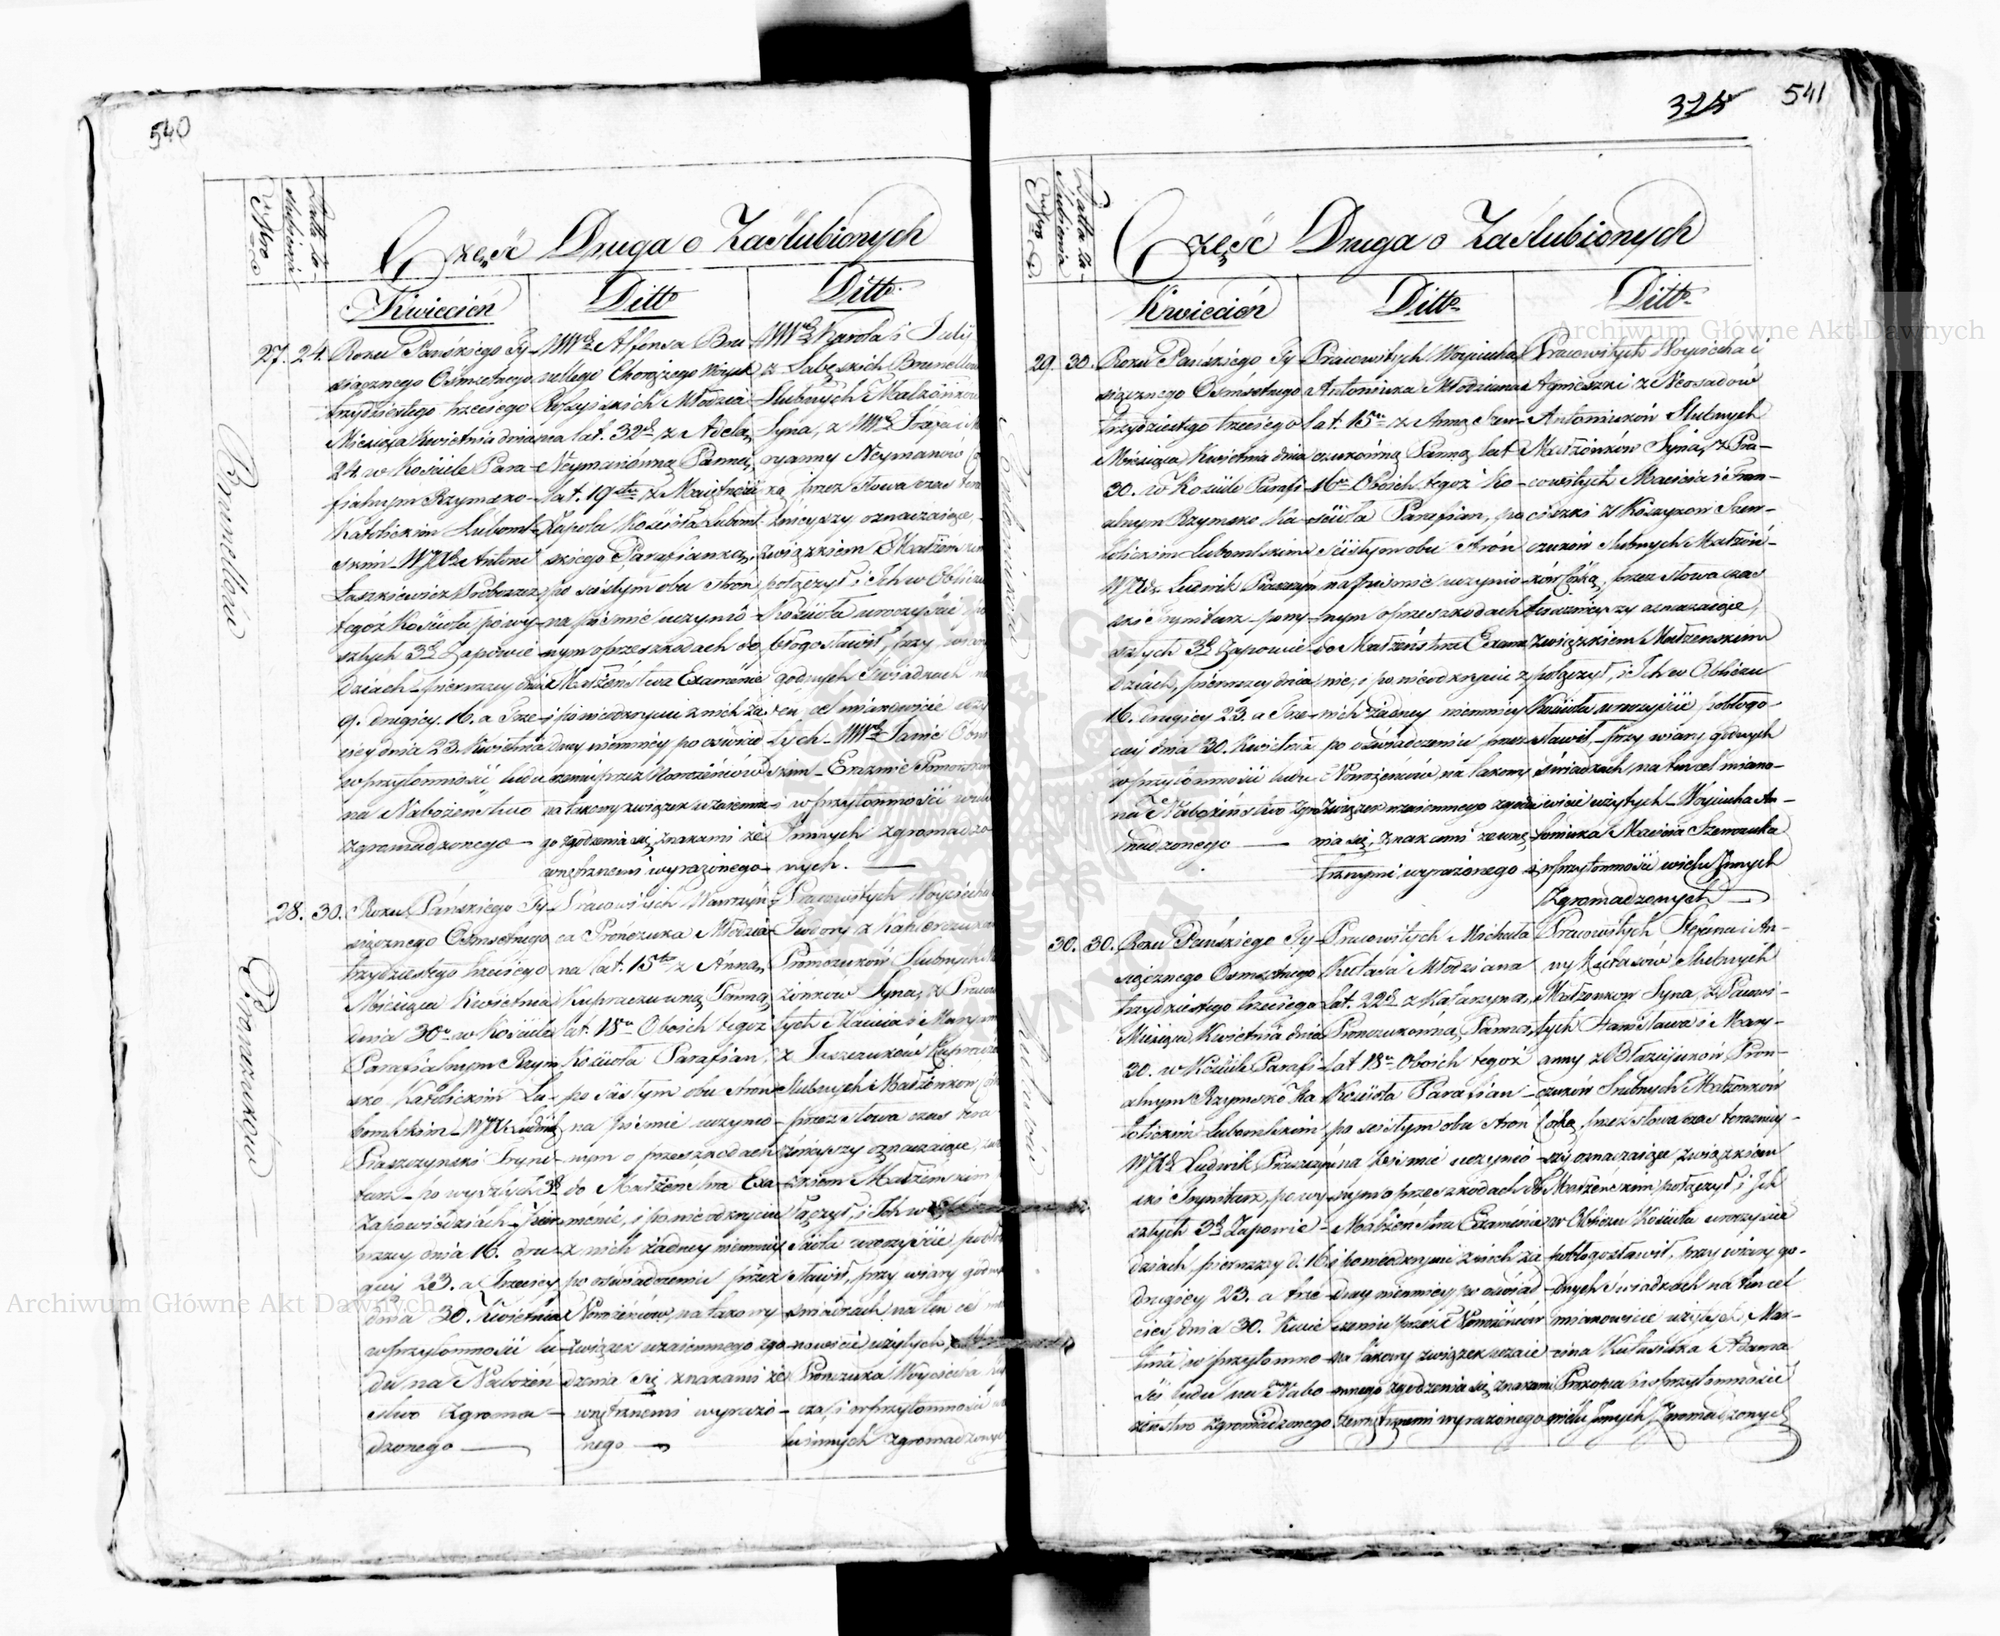 540
Część Druga o Zaślubionych
Kwiecień
Ditto
Ditto
27. 24.
Roku Pańskiego Ty-
siącznego Ośmsetnego
trzydziestego trzeciego
Miesiąca Kwietnia dnia
24. w Kościele Para-
fialnym Rzymsko-
Katolickim Luboml-
skim WJX Antoni
Laszkiewicz Proboszcz
tegoż Kościoła po wy-
szłych 3ch Zapowie-
dziach pierwszey dnia
9. drugiey 16. a Trze-
ciey dnia 23. Kwietnia
w przytomności ludu
na Nabożeństwo
zgromadzonego
Alfonsa Bru
nellego Chorążego Woysk
Rossyiskich Młodzia
na lat. 32ch z Adelą
Neymanówną Panną
lat. 19
Kościoła Luboml
skiego Parafianką
po ścisłym obu stron
na piśmie uczynio-
nym o przeszkodach do
Małżeństwa Examenie
i po nieodkryciu z nich ża
dney niemniey po oświad
czeniu przez Nowożeńców
na takowy związek wzaiemne
go zgodzenia się znakami ze
wnętrznemi wyrażonego
Karola i Julij
z Łabęckich Brunellow
Ślubnych Małżonków
Syna, z
ryanny Neymanów
ką przez słowa czas tera
źnieyszy oznaczaiące,
związkiem Małżeńskim
połączył i Ich w Obliczu
Kościoła uroczyście po
błogosławił, przy wiary
godnych Świadkach na
ten cel mianowicie uży
tych
skim Erazmie Pomorskim
i w przytomności wielu
innych zgromadzo
nych.
Brunellów
28. 30.
Roku Pańskiego Ty-
siącznego Ośmsetnego
trzydziestego trzeciego
Miesiąca Kwietnia
dnia 30o w Kościele
Parafialnym Rzym
sko Katolickim Lu-
bomlskim WJX Ludwik
Piaszczyński Tryni-
tarz po wyszłych 3ch
Zapowiedziach pier
wszey dnia 16. dru-
giey 23. a Trzeciey
dnia 30. Kwietnia
w przytomności lu-
du na Nabożeń
stwo zgroma-
dzonego
Pracowitych Wawrzyń
ca Prończuka Młodzia
na lat. 15tu z Anną
Kupraczuwną Panną
lat. 18u Oboich tegoż
Kościoła Parafian,
po ścisłym obu stron
na piśmie uczynio-
nym o przeszkodach
do Małżeństwa Exa-
menie, i po nieodkryciu
z nich żadney niemniey
po oświadczeniu przez
Nowożeńców, na takowy
związek wzaiemnego zgo
dzenia się znakami ze
wnętrznemi wyrażo-
nego
Pracowitych Woyciecha
Prończuków Ślubnych
żonkow Syna, z Praco
tych Macieia i Maryan
Ślubnych Małżonków
przez słowa czas tera
źnieyszy oznaczaiące,
zkiem Małżeńskim
łączył, i Ich w
ścioła uroczyście pobło
sławił, przy wiary godn
świadkach na ten cel
nowicie użytych,
Prończuka Woyciecha
i w przytomności
lu innych zgromadzonych
Prończuków
325 541
Część Druga o Zaślubionych
Kwiecień
Ditto
Ditto
29. 30.
Roku Pańskiego Ty-
siącznego Ośmsetnego
trzydziestego trzeciego
Miesiąca Kwietnia dnia
30. w Kościele Parafi-
alnym Rzymsko Ka-
tolickim Lubomlskim
WJX Ludwik Piaszczyń
ski Trynitarz po wy-
szłych 3ch Zapowie-
dziach, pierwszey dnia
16. drugiey 23. a Trze-
ciey dnia 30. Kwietnia
w przytomności ludu
na Nabożeństwo zgro
madzonego
Pracowitych Woyciecha
Antoniuka Młodziana
lat. 15tu z Anną Szew-
czukówną Panną lat
16u Oboich tegoż Ko-
ścioła Parafian, po
ścisłym obu stron
na piśmie uczynio-
nym o przeszkodach
do Małżeństwa Exame
nie, i po nieodkryciu z
nich żadney niemniey
po oświadczeniu przez
Nowożeńców na takowy
związek wzaiemnego zgodze
nia się, znakami zewnę-
trznymi wyrażonego
Pracowitych Woyciecha i
Agnieszki z Neosadów
Antoniuków Ślubnych
Małżonkow Syna, z Pra-
cowitych Macieia i Fran-
ciszki z Kozyrow Szew-
czuków ślubnych Małżon-
ków Córką, przez słowa czas
teraźnieyszy oznaczaiące,
związkiem Małżeńskim
połączył, i Ich w Obliczu
Kościoła uroczyście pobłogo-
sławił, przy wiary godnych
świadkach na ten cel miano-
wicie użytych Woyciecha An-
toniuka Macieia Szewczuka
i w przytomności wielu Innych
Zgromadzonych
30. 30.
Roku Pańskiego Ty-
siącznego Ośmsetnego
trzydziestego trzeciego
Miesiąca Kwietnia dnia
30. w Kościele Parafi-
alnym Rzymsko Ka
tolickim Lubomlskim
WJX Ludwik Piaszczyń
ski Trynitarz, po wy-
szłych 3ch Zapowie-
dziach, pierwszey d. 16
drugiey 23. a trze-
ciey dnia 30. Kwie
tnia w przytomno-
ści ludu na Nabo-
żeństwo zgromadzonego
Pracowitych Michała
Kulasa Młodziana
lat. 22ch z Katarzyną
Prończukowną Panną
lat 18u Oboich tegoż
Kościoła Parafian
po ścisłym obu stron
na piśmie uczynio-
nym o przeszkodach do
Małżeństwa Examenie
i po nieodkryciu z nich ża
dney niemniey po oświad
czeniu przez Nowożeńców
na takowy związek wzaie-
mnego zgodzenia się, znakami
zewnętrznemi wyrażonego
Pracowitych Stefana i An-
ny Kulasów Ślubnych
Małżonkow Syna, z Pracowi-
tych Stanisława i Mary-
anny z Błazijuków Pron-
czukow Ślubnych Małżonków
Córką, przez słowa czas teraźniey-
szy oznaczaiące, związkiem
Małżeńskim połączył, i Ich
w Obliczu Kościoła uroczyście
pobłogosławił, przy wiary go-
dnych świadkach na ten cel
mianowicie użytych, Mar-
cina Kulasika Adama
i w przytomności
wielu Innych Zgromadzonych
Archiwum Główne Akt Dawnych
Archiwum Główne Akt Dawnych